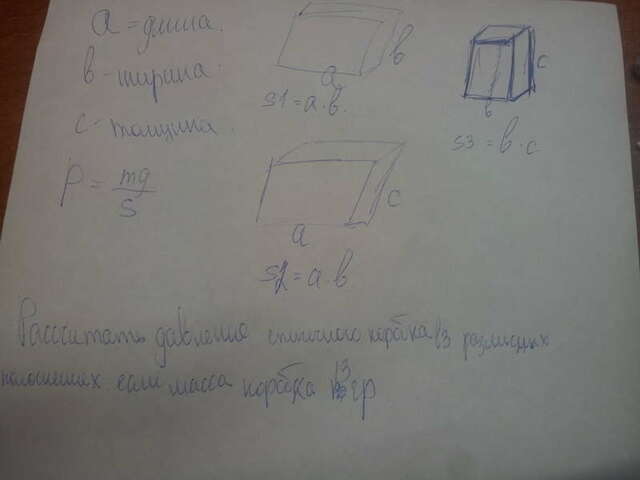 a = длина.
в - ширина.
с - толщина.
p = mg / s
a
в
s1 = a · в.
a
с
s2 = a · в
в
с
s3 = в · с
Рассчитать давление спичечного коробка в 3 различных
положениях если масса коробка 13 гр